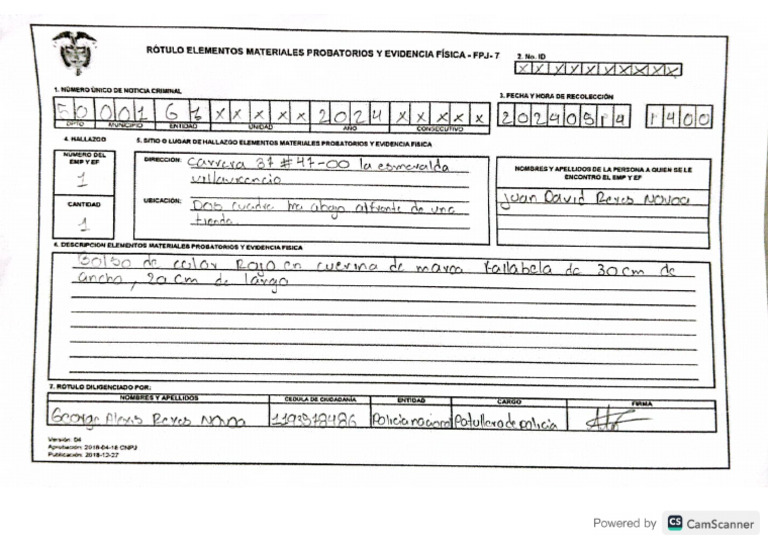 RÓTULO ELEMENTOS MATERIALES PROBATORIOS Y EVIDENCIA FÍSICA - FPJ- 7
2. No. ID
X X X X X X X X X X
1. NÚMERO ÚNICO DE NOTICIA CRIMINAL
3. FECHA Y HORA DE RECOLECCIÓN
5 0 0 0 1 6 1 X X X X X 2 0 2 4 X X X X X
2 0 2 4 0 5 1 4 1 4 0 0
DPTO MUNICIPIO ENTIDAD UNIDAD AÑO CONSECUTIVO
4. HALLAZGO
5. SITIO O LUGAR DE HALLAZGO ELEMENTOS MATERIALES PROBATORIOS Y EVIDENCIA FÍSICA
NÚMERO DEL EMP Y EF
1
CANTIDAD
1
DIRECCIÓN: Carrera 37 # 41-00 la esmeralda
villavicencio
UBICACIÓN: Dos cuadra abajo alfrente de una
tienda.
NOMBRES Y APELLIDOS DE LA PERSONA A QUIEN SE LE
ENCONTRO EL EMP Y EF
Juan David Reyes Novoa
6. DESCRIPCION ELEMENTOS MATERIALES PROBATORIOS Y EVIDENCIA FISICA
Bolso de color Rojo en cuerina de marca de 30 cm de
ancho, 20 cm de largo
7. ROTULO DILIGENCIADO POR:
NOMBRES Y APELLIDOS CEDULA DE CIUDADANÍA ENTIDAD CARGO FIRMA
George Alexis Reyes Novoa Policia nacional Patrullero de policia
Versión: 04
Aprobación: 2018-04-18 CNPJ
Publicación: 2018-12-27
Powered by CS CamScanner